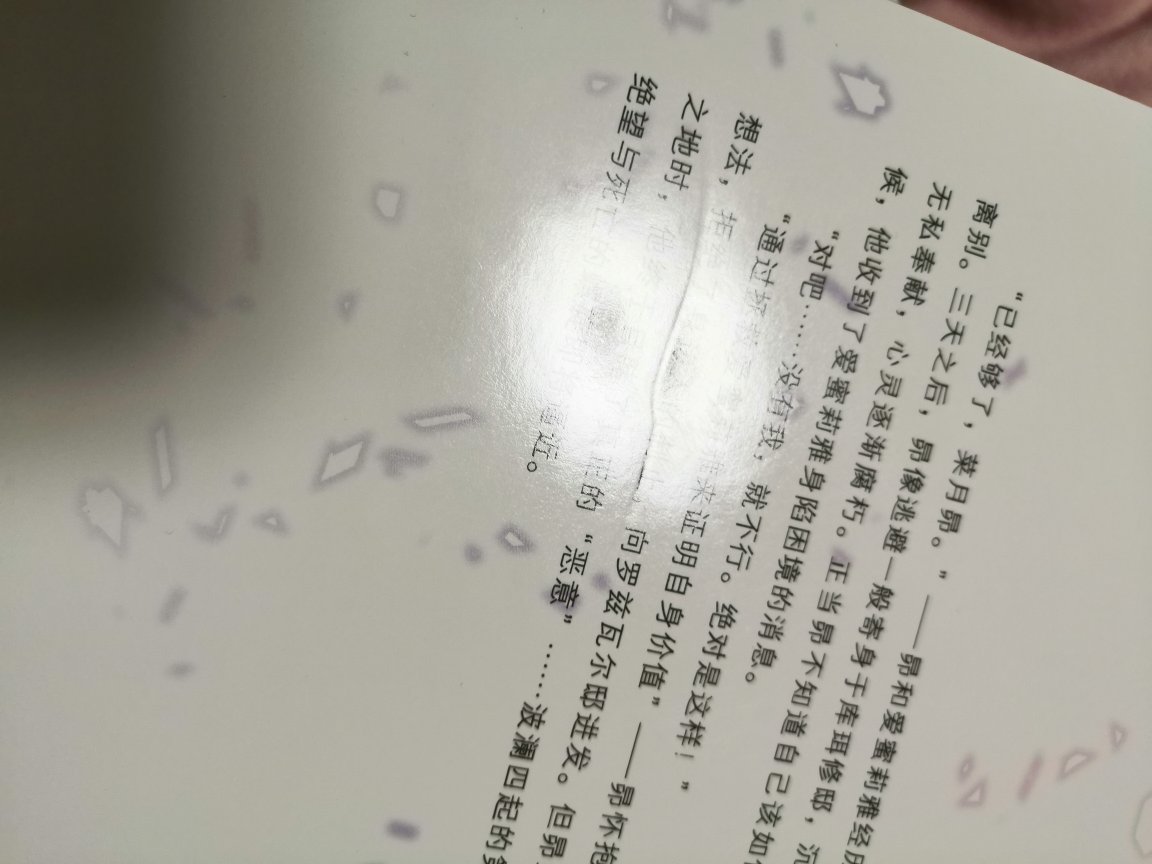 “已经够了，菜月昴。”——昴和爱蜜莉雅经历
离别。三天之后，昴像逃避一般寄身于库珥修邸，沉
无私奉献，心灵逐渐腐朽。正当昴不知道自己该如何
候，他收到了爱蜜莉雅身陷困境的消息。
“对吧……没有我，就不行。绝对是这样！”
“通过 来证明自身价值”——昴怀抱
想法，拒绝 向罗兹瓦尔邸进发。但昴
之地时，他 的“恶意”……波澜四起的
绝望与死亡的 逼近。